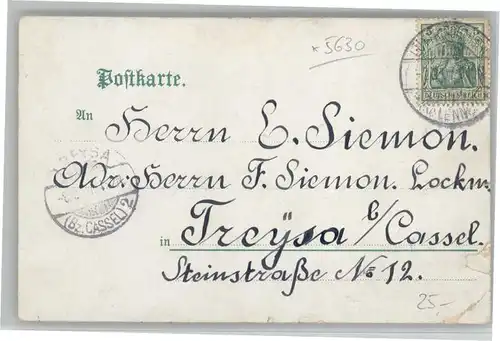 *5630
Postkarte.
An
Herrn E. Siemon.
Adr: Herrn F. Siemon. Lockm.
in Treÿsa b/Cassel.
Steinstraße No 12.
TREYSA
(Bz. CASSEL) 2
25.-